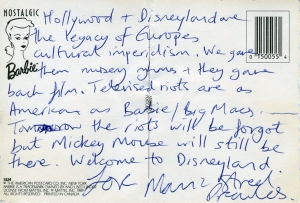 NOSTALGIC
Barbie
Hollywood + Disneyland are
the legacy of Europes
cultural imperialism. We gave
them nursery rhymes + they gave
back film. Televised riots are as
American as Barbie/Big Macs.
Tomorrow the riots will be forgot
but Mickey Mouse will still be
there. Welcome to Disneyland.
Love Manic Street
Preachers.
0 150055 4
© THE AMERICAN POSTCARD CO. INC. NEW YORK
PRINTED IN CANADA